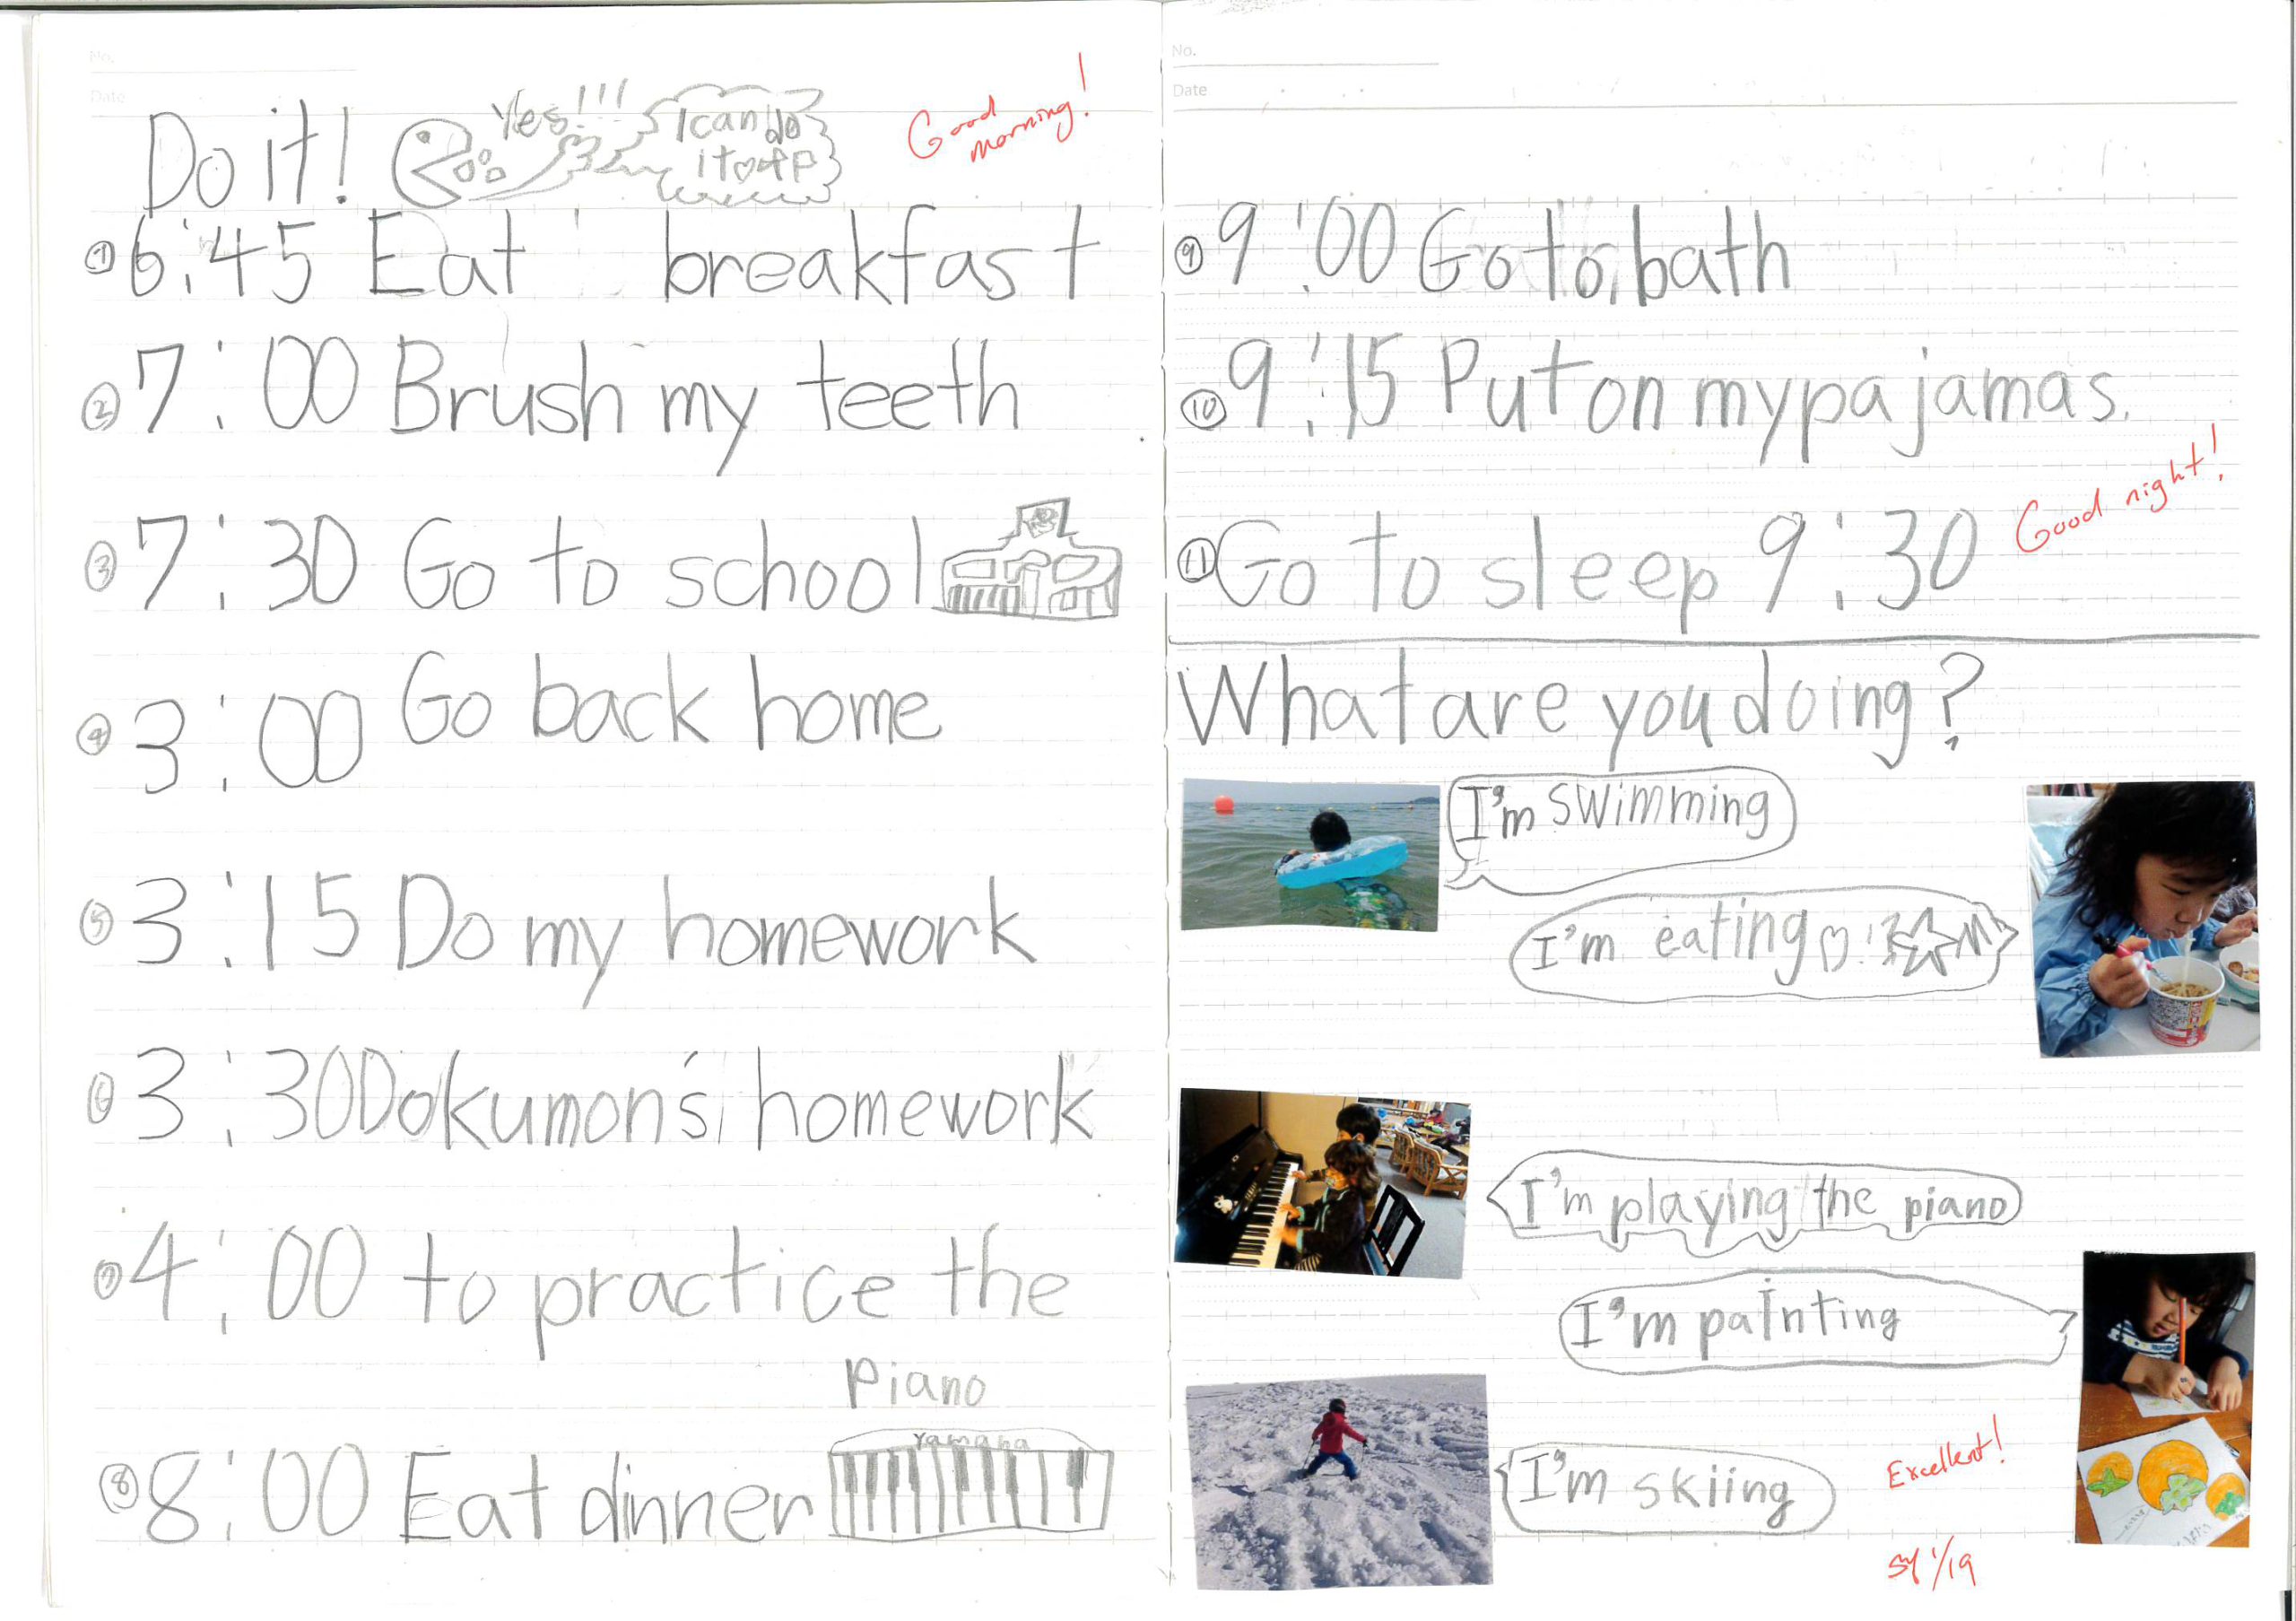 No.
Date
Do it!
Yes!!!
I can do
it
Good
morning!
① 6:45 Eat breakfast
② 7:00 Brush my teeth
③ 7:30 Go to school
④ 3:00 Go back home
⑤ 3:15 Do my homework
⑥ 3:30 Do kumon's homework
⑦ 4:00 to practice the
piano
⑧ 8:00 Eat dinner
Yamaha
No.
Date
⑨ 9:00 Go to bath
⑩ 9:15 Put on my pajamas.
⑪ Go to sleep 9:30
Good night!
What are you doing?
I'm swimming
I'm eating♡!?☆
I'm playing the piano
I'm painting
I'm skiing
Excellent!
1/19